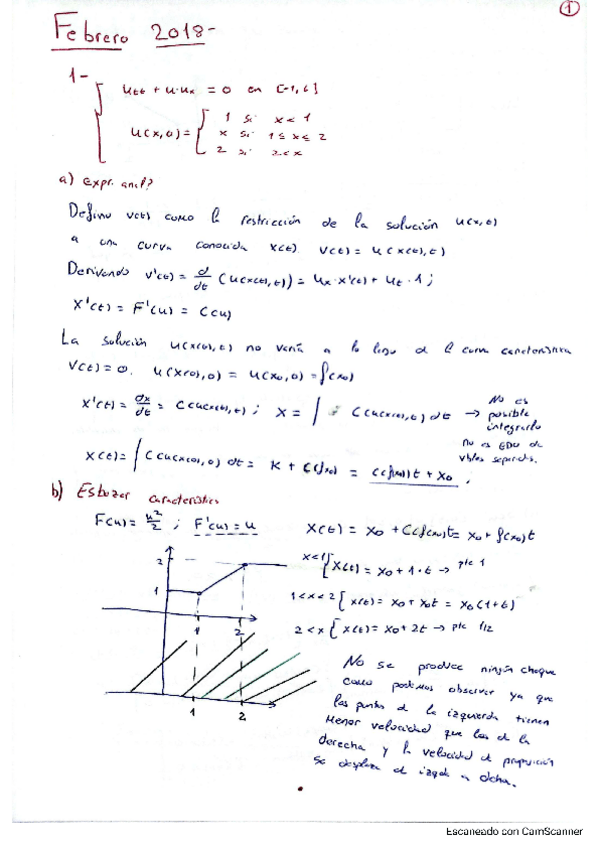 1
Febrero 2018-
1-
utt + u·ux = 0 en [-1,6]
u(x,0) = { 1 si x < 1
x si 1 ≤ x ≤ 2
2 si 2 < x
a) Expr. anal?
Defino v(t) como la restricción de la solución u(x,0)
a una curva conocida x(t). v(t) = u(x(t),t)
Derivando v'(t) = d/dt (u(x(t),t)) = ux · x'(t) + ut · 1 ;
x'(t) = F'(u) = C(u)
La solución u(x(0),0) no varía a lo largo de la curva característica
v(t) = 0. u(x(0),0) = u(x0,0) = f(x0)
x'(t) = dx/dt = C(u(x(t),t) ; x = ∫ C(u(x(t),t) dt →
No es
posible
integrarlo
no es EDO de
vbles separads.
x(t) = ∫ C(u(x(0),0) dt = K + C(f(x0) = C(f(x0))t + x0 ,
b) Esbozar característica
F(u) = u²/2 ; F'(u) = u
x(t) = x0 + C(f(x0)t = x0 + f(x0)t
x<1 { x(t) = x0 + 1·t → pte 1
1<x<2 { x(t) = x0 + x0t = x0(1+t)
2<x { x(t) = x0 + 2t → pte 1/2
2
1
1
2
1
2
No se produce ningún choque
como podemos observar ya que
los puntos de la izquierda tienen
menor velocidad que los de la
derecha y la velocidad de propagación
se desplaza de izqda a dcha.
Escaneado con CamScanner